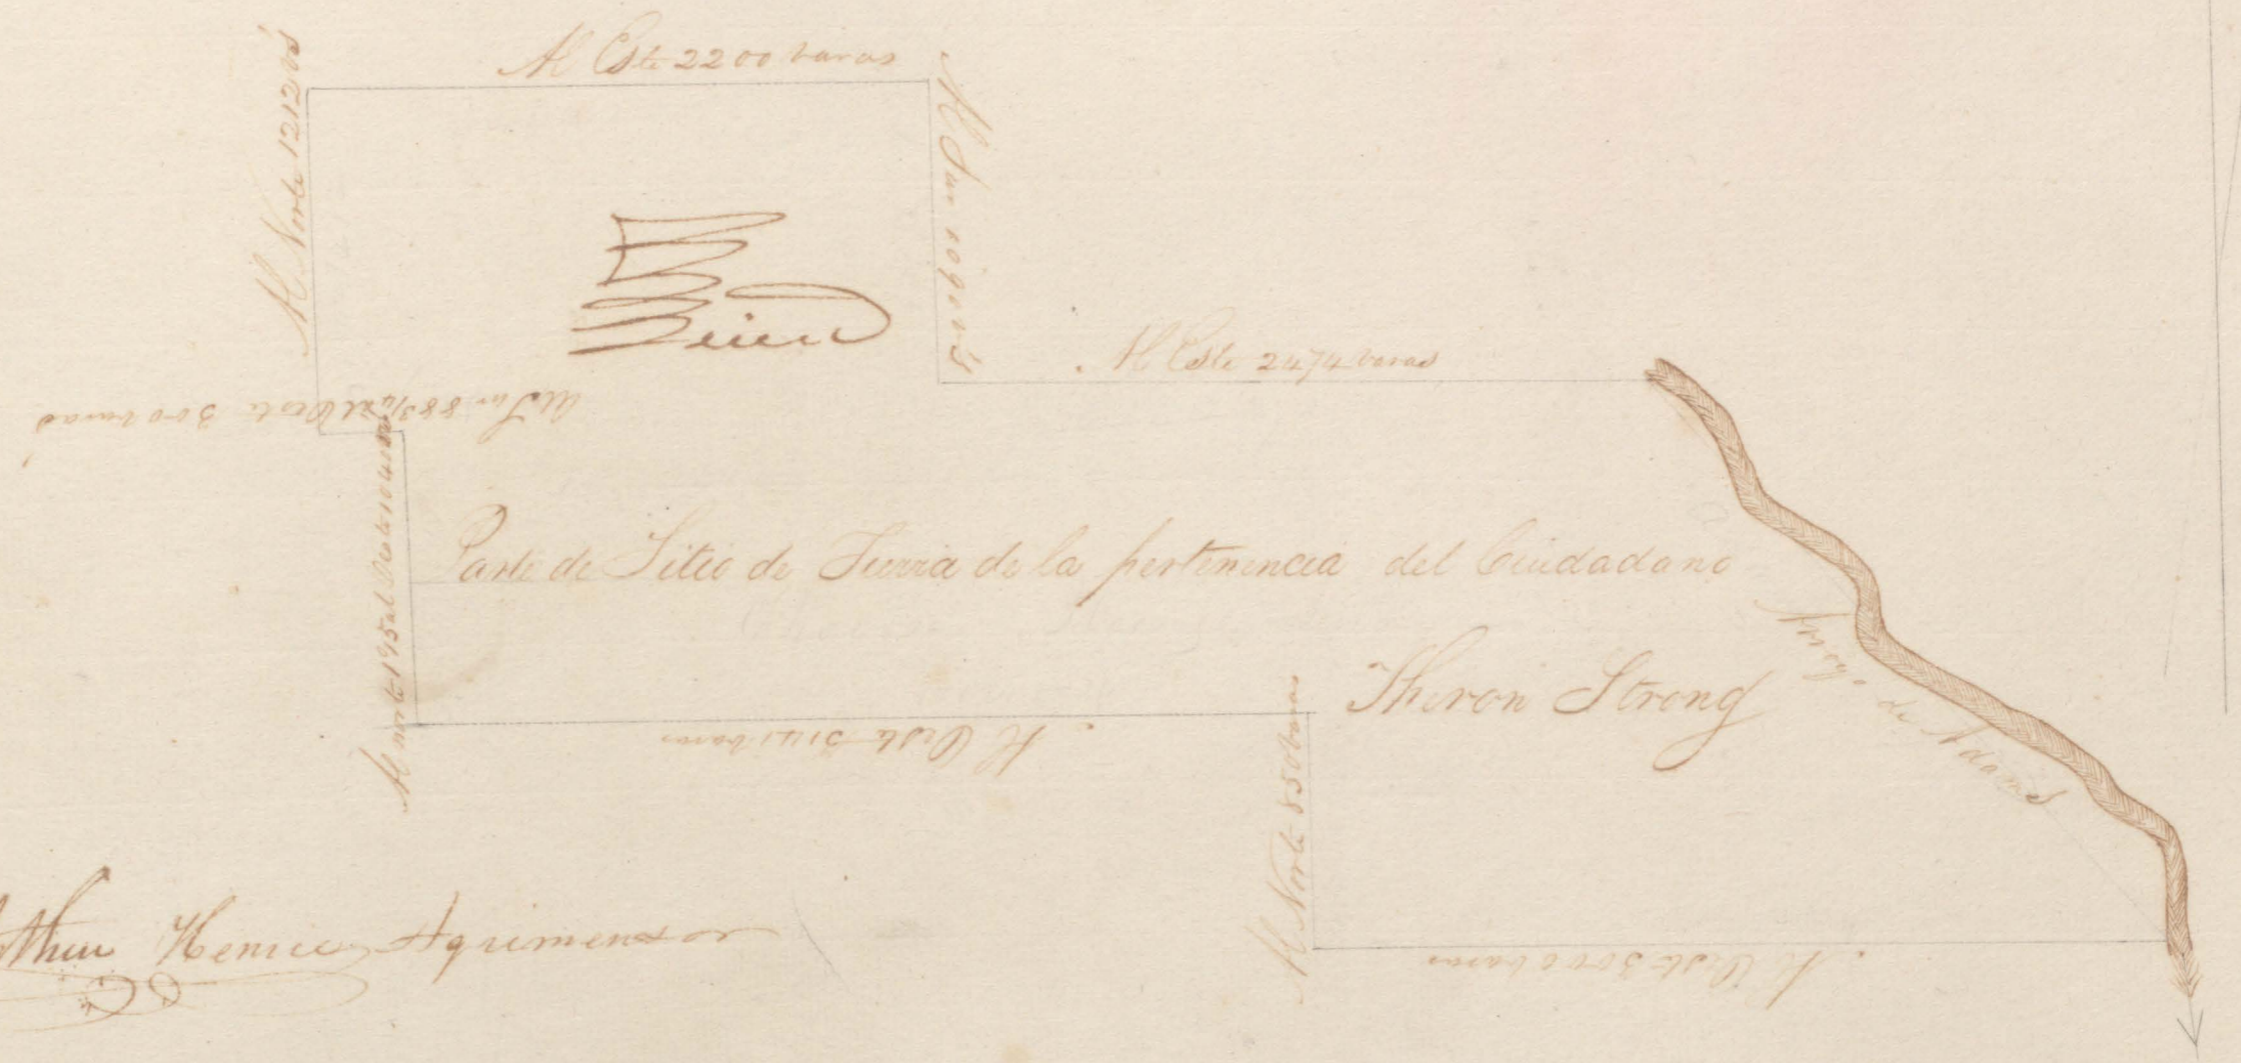 Al Este 2200 varas
Al Norte 1212 vs
Al Sur 1090 vs
Al Este 2474 varas
Al Sur 88 al Oeste 300 varas
Al norte 195 al Oeste
Parte de Sitio de Tierra de la pertenencia del Ciudadano
Theron Strong
Arroyo de Adams
Al Oeste 3141 varas
Al Norte 850 varas
Al Oeste 3000 varas
Agrimensor